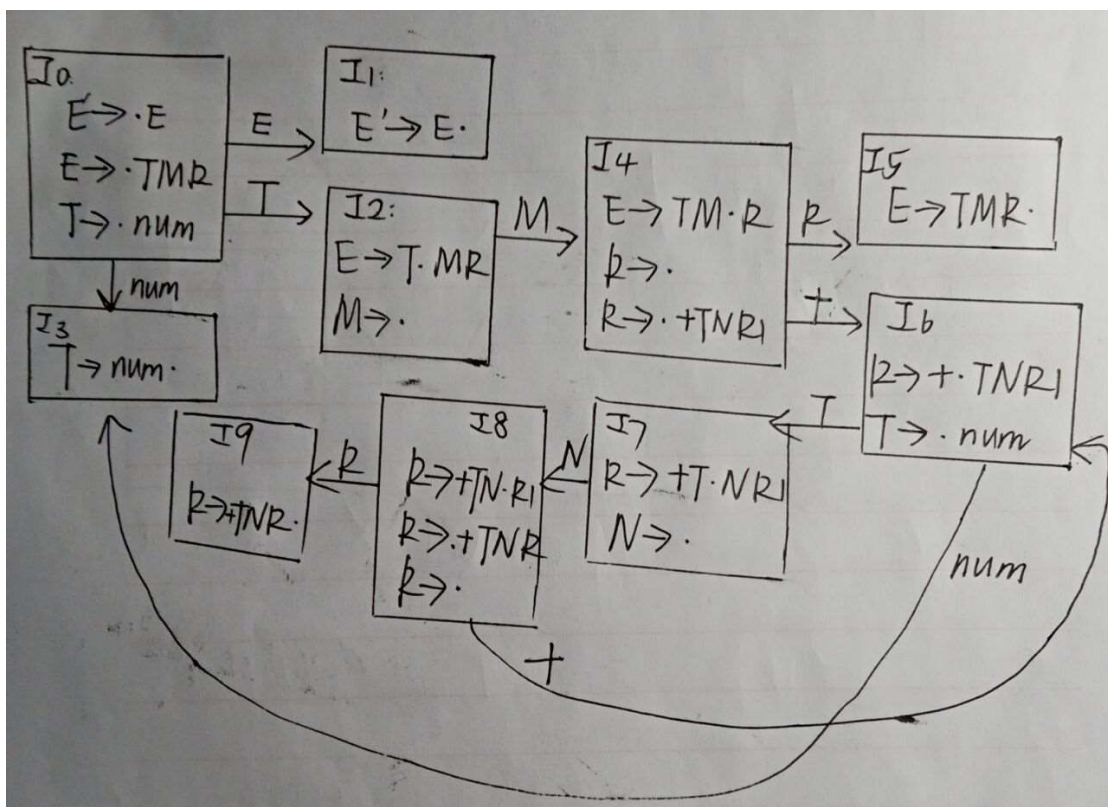 I0:
E'→·E
E→·TMR
T→·num
E
T
num
I1:
E'→E·
I2:
E→T·MR
M→·
M
I3
T→num·
I4
E→TM·R
R→·
R→·+TNR1
R
+
I5
E→TMR·
I6
R→+·TNR1
T→·num
T
num
I7
R→+T·NR1
N→·
N
I8
R→+TN·R1
R→·+TNR
R→·
R
+
I9
R→+TNR·